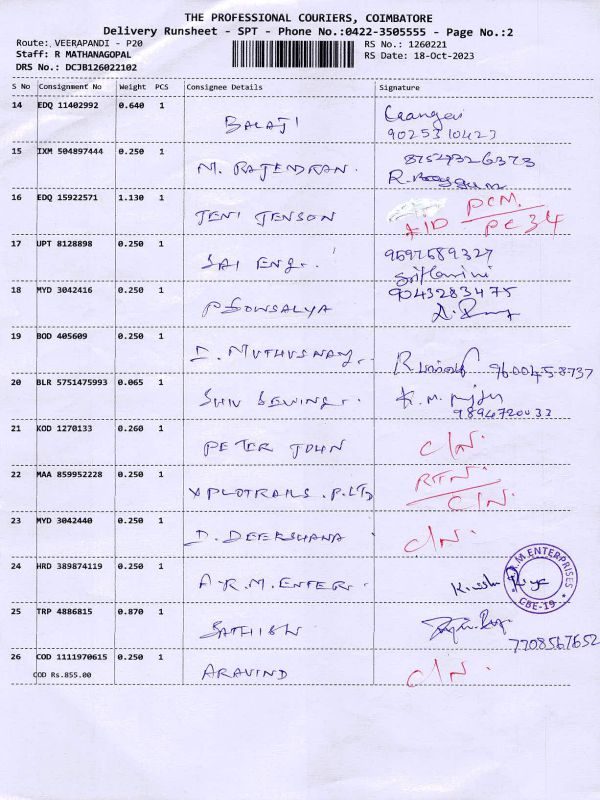 THE PROFESSIONAL COURIERS, COIMBATORE
Delivery Runsheet - SPT - Phone No.:0422-3505555 - Page No.:2
Route: VEERAPANDI - P20
Staff: R MATHANAGOPAL
DRS No.: DCJB126022102
RS No.: 1260221
RS Date: 18-Oct-2023
S No Consignment No Weight PCS Consignee Details Signature
14 EDQ 11402992 0.640 1 BALAJI
9025310423
15 IXM 504897444 0.250 1 M. RAJENDRAN.
16 EDQ 15922571 1.130 1 JENI JENSON PCM.
PC34
17 UPT 8128898 0.250 1 SAI ENG.. 9597589327
18 MYD 3042416 0.250 1 P GOWSALYA 9043283475
19 BOD 405609 0.250 1 9600458737
20 BLR 5751475993 0.065 1 SHIV SEWING.. K. M.
9894720033
21 KOD 1270133 0.260 1 PETER JOHN C/N.
22 MAA 859952228 0.250 1 XPLOTRAILS. P.LTD RTN.
C/N.
23 MYD 3042440 0.250 1 D. DEERSHANA C/N.
24 HRD 389874119 0.250 1 A.R.M. ENTER.
M ENTERPRISES
CBE-19
25 TRP 4886815 0.870 1 SATHISH
7708567652
26 COD 1111970615 0.250 1 ARAVIND C/N.
COD Rs.855.00